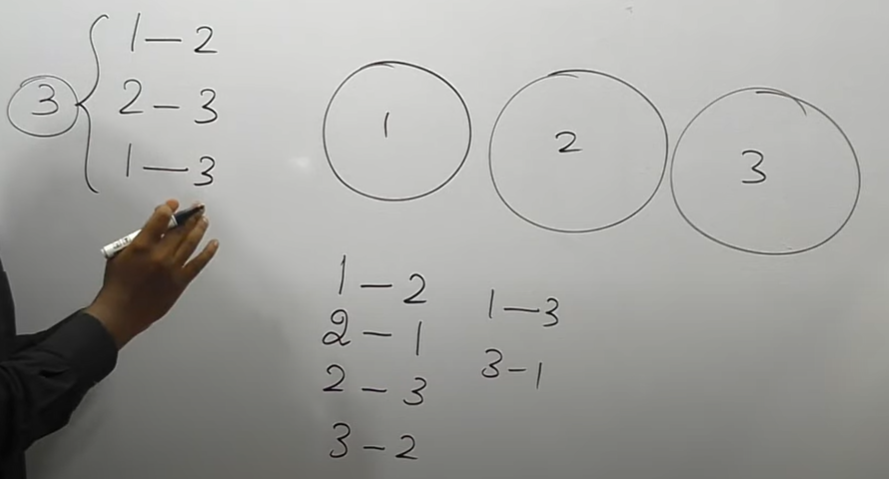 3
1 – 2
2 – 3
1 – 3
1
2
3
1 – 2
2 – 1
2 – 3
3 – 2
1 – 3
3 – 1